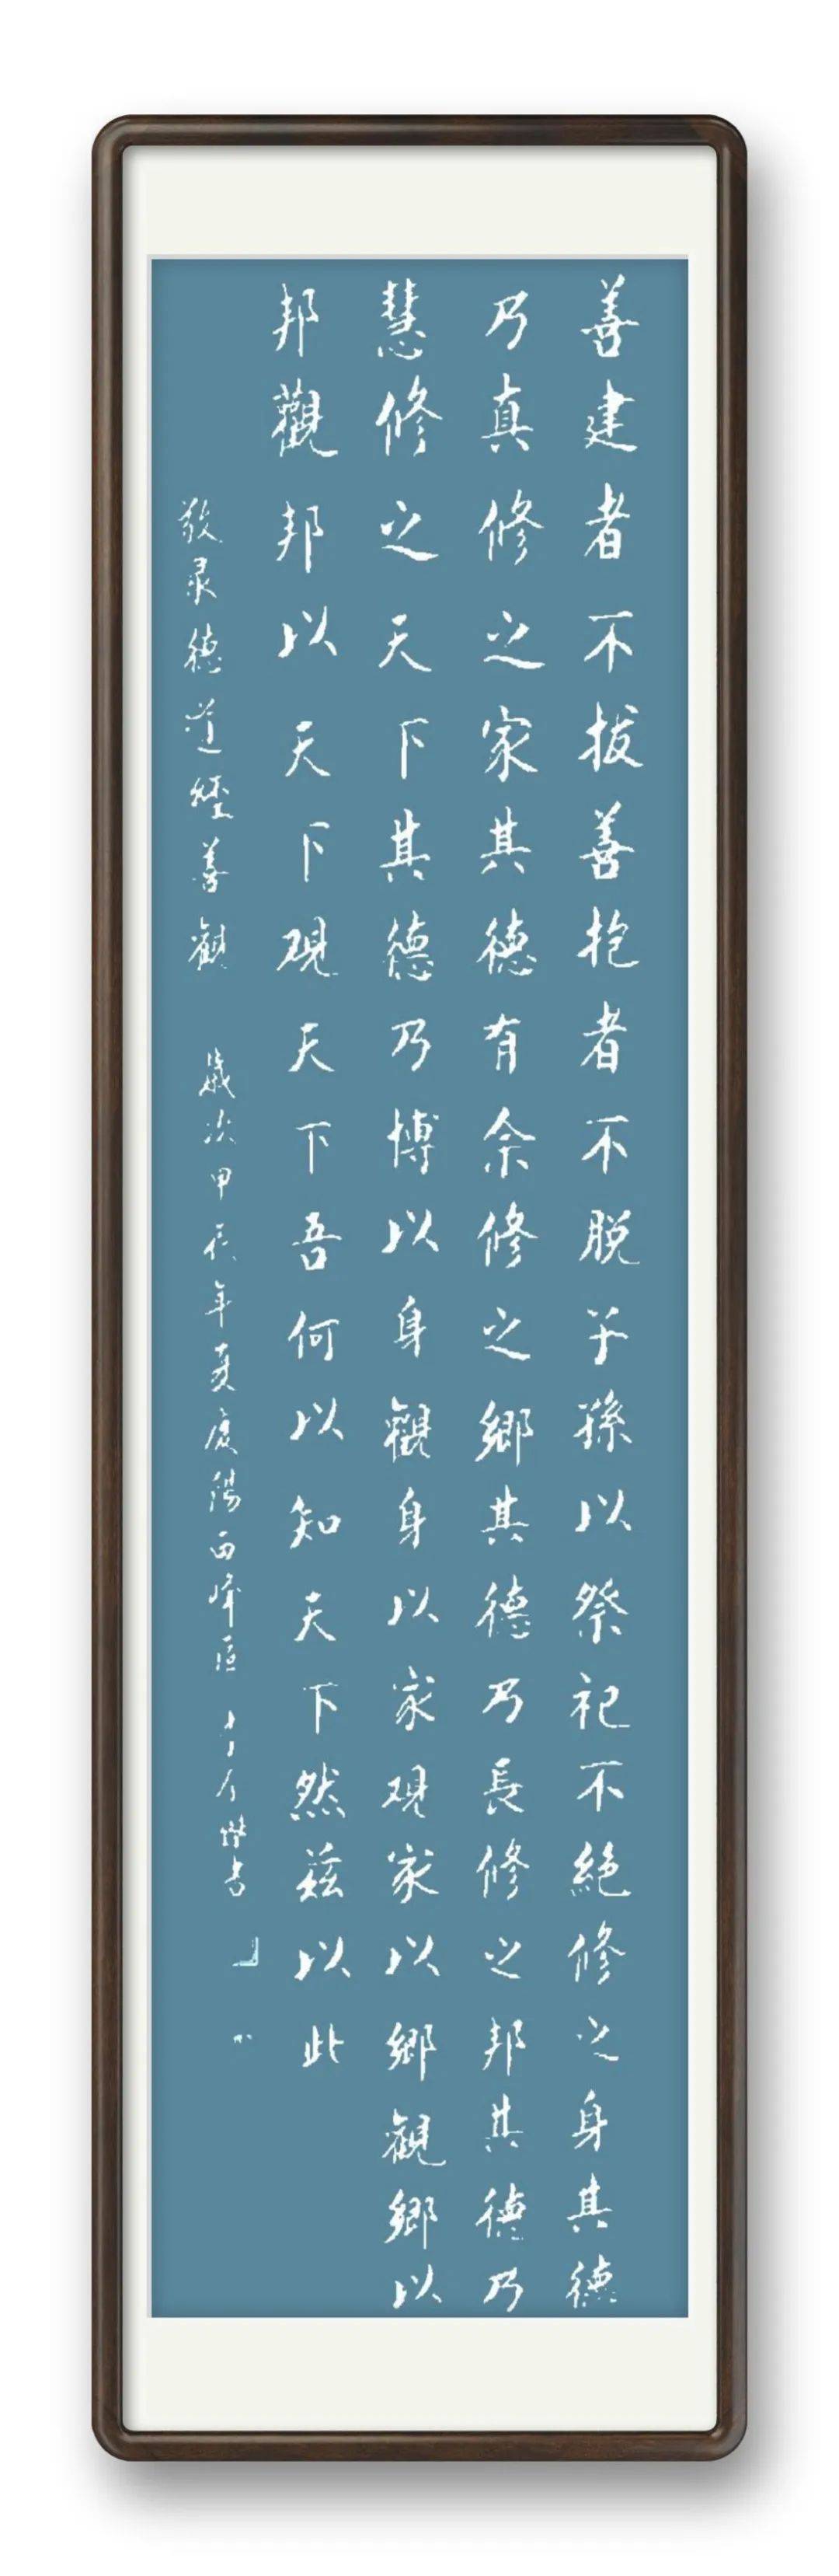 善建者不拔善抱者不脱子孫以祭祀不絶修之身其德
乃真修之家其德有余修之鄉其德乃長修之邦其德乃
慧修之天下其德乃博以身觀身以家观家以鄉觀鄉以
邦觀邦以天下观天下吾何以知天下然兹以此
敬录德道經善觀 歲次甲辰年夏慶陽西峰区